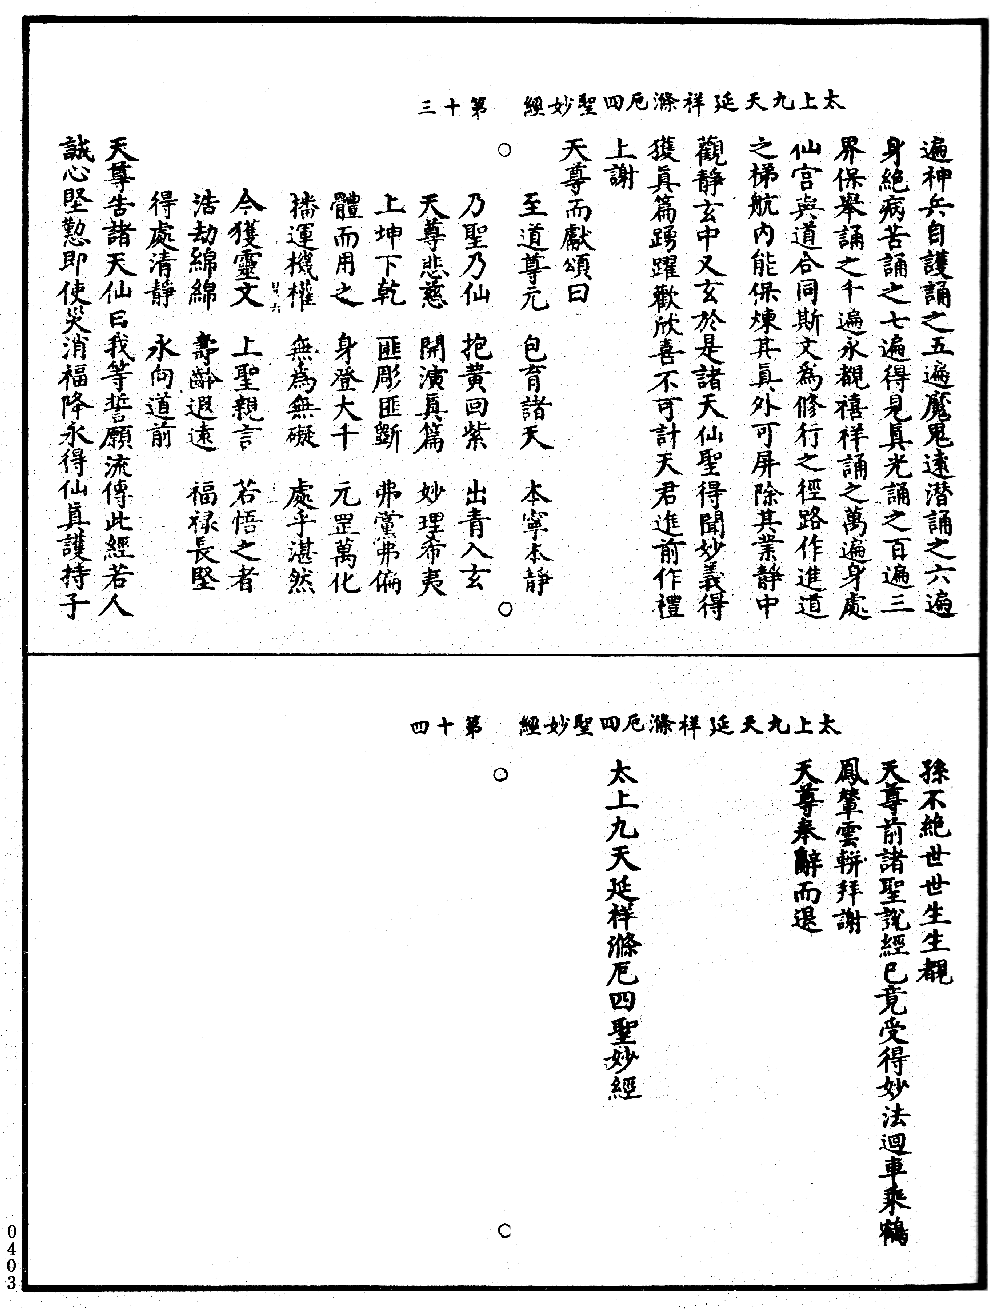 太上九天延祥滌厄四聖妙經　第十三
遍神兵自護誦之五遍魔鬼遠潛誦之六遍
身絶病苦誦之七遍得見眞光誦之百遍三
界保舉誦之千遍永覩禧祥誦之萬遍身處
仙宫與道合同斯文爲修行之徑路作進道
之梯航内能保煉其眞外可屏除其業静中
觀静玄中又玄於是諸天仙聖得聞妙義得
獲眞篇踴躍歡欣喜不可計天君進前作禮
上謝
天尊而獻頌曰
至道尊元　包育諸天　本寧本静
乃聖乃仙　抱黄回紫　出青入玄
天尊悲慈　開演眞篇　妙理希夷
上坤下乾　匪彫匪斵　弗黨弗偏
體而用之　身登大千　元罡萬化
播運機權　無爲無礙　處乎湛然
今獲靈文　上聖親言　若悟之者
浩劫綿綿　壽齡遐遠　福禄長堅
得處清静　永向道前
天尊告諸天仙曰我等誓願流傳此經若人
誠心堅懃即使災消福降永得仙眞護持子
太上九天延祥滌厄四聖妙經　第十四
孫不絶世世生生覩
天尊前諸聖説經已竟受得妙法迴車乘鶴
鳳輦雲軿拜謝
天尊奉辭而退
太上九天延祥滌厄四聖妙經
0403